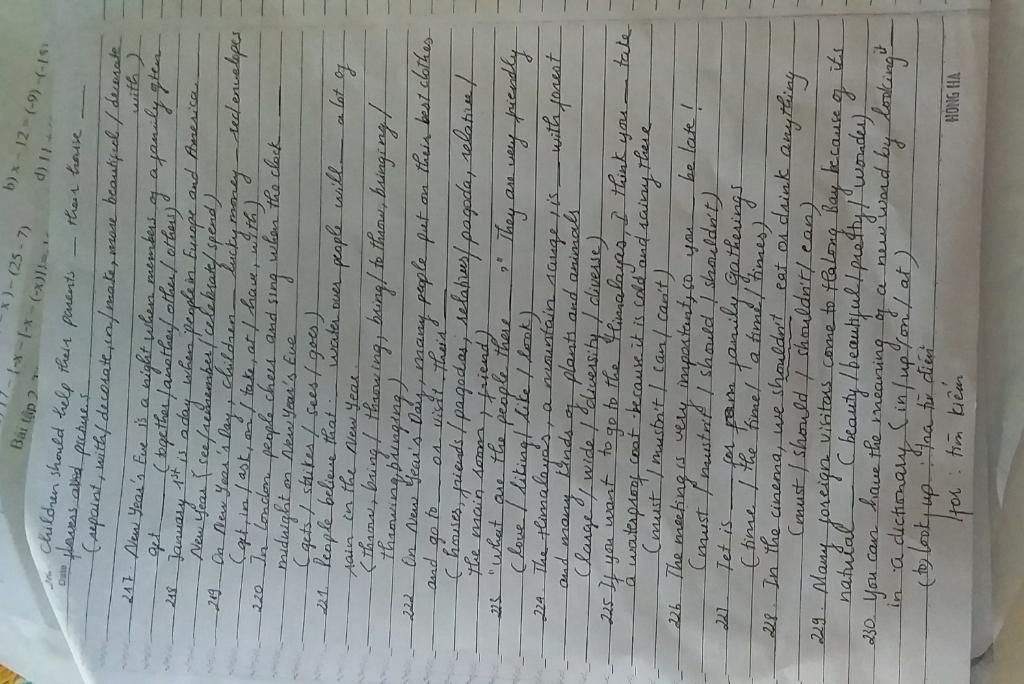 b) x - 12 = (-9) - (-15)
- x) - (25 - 7)
d) 11 +
Bài tập 2
Date
Children should help their parents — their house
flowers and pictures.
(repaint, with / decorate, via / make, more beautiful / decorate
with)
217. New Year's Eve is a night when members of a family often
get ___ (together / another / other / others)
218 January 1st is a day when people in Europe and America
New Year (see / remember / celebrate / spend)
219 On New Year's Day, children — lucky money — red envelopes
(get, in / ask, on / take, at / have, with)
220 In London people cheer and sing when the clock ___
midnight on New Year's Eve
(gets / strikes / sees / goes)
221. People believe that water over people will ___ a lot of
rain in the New Year.
(throw, bring / throwing, bring / to throw, bringing /
throwing, bringing)
222 On New Year's Day, many people put on their best clothes
and go to ___ or visit their ___
(houses, friends / pagodas, relatives / pagoda, relative /
the main room, friend)
223. "What are the people there ___?" "They are very friendly
(love / liking / like / look)
224 The Himalayas, a mountain range, is ___ with forest
and many kinds of plants and animals
(large / wide / diversity / diverse)
225 If you want to go to the Himalayas, I think you — take
a waterproof coat because it is cold and rainy there
(must / mustn't / can / can't)
226 The meeting is very important, so you ___ be late!
(must / mustn't / should / shouldn't)
227 Tet is ___ for family gatherings
(time / the time / a time / times)
228. In the cinema, we shouldn't eat or drink anything
(must / should / shouldn't / can)
229. Many foreign visitors come to Ha Long Bay because of its
natural ___ (beauty / beautiful / pretty / wonder)
230 You can have the meaning of a new word by looking it
in a dictionary (in / up / on / at)
(to) look up: tra từ điển
for: tìm kiếm
HONG HA